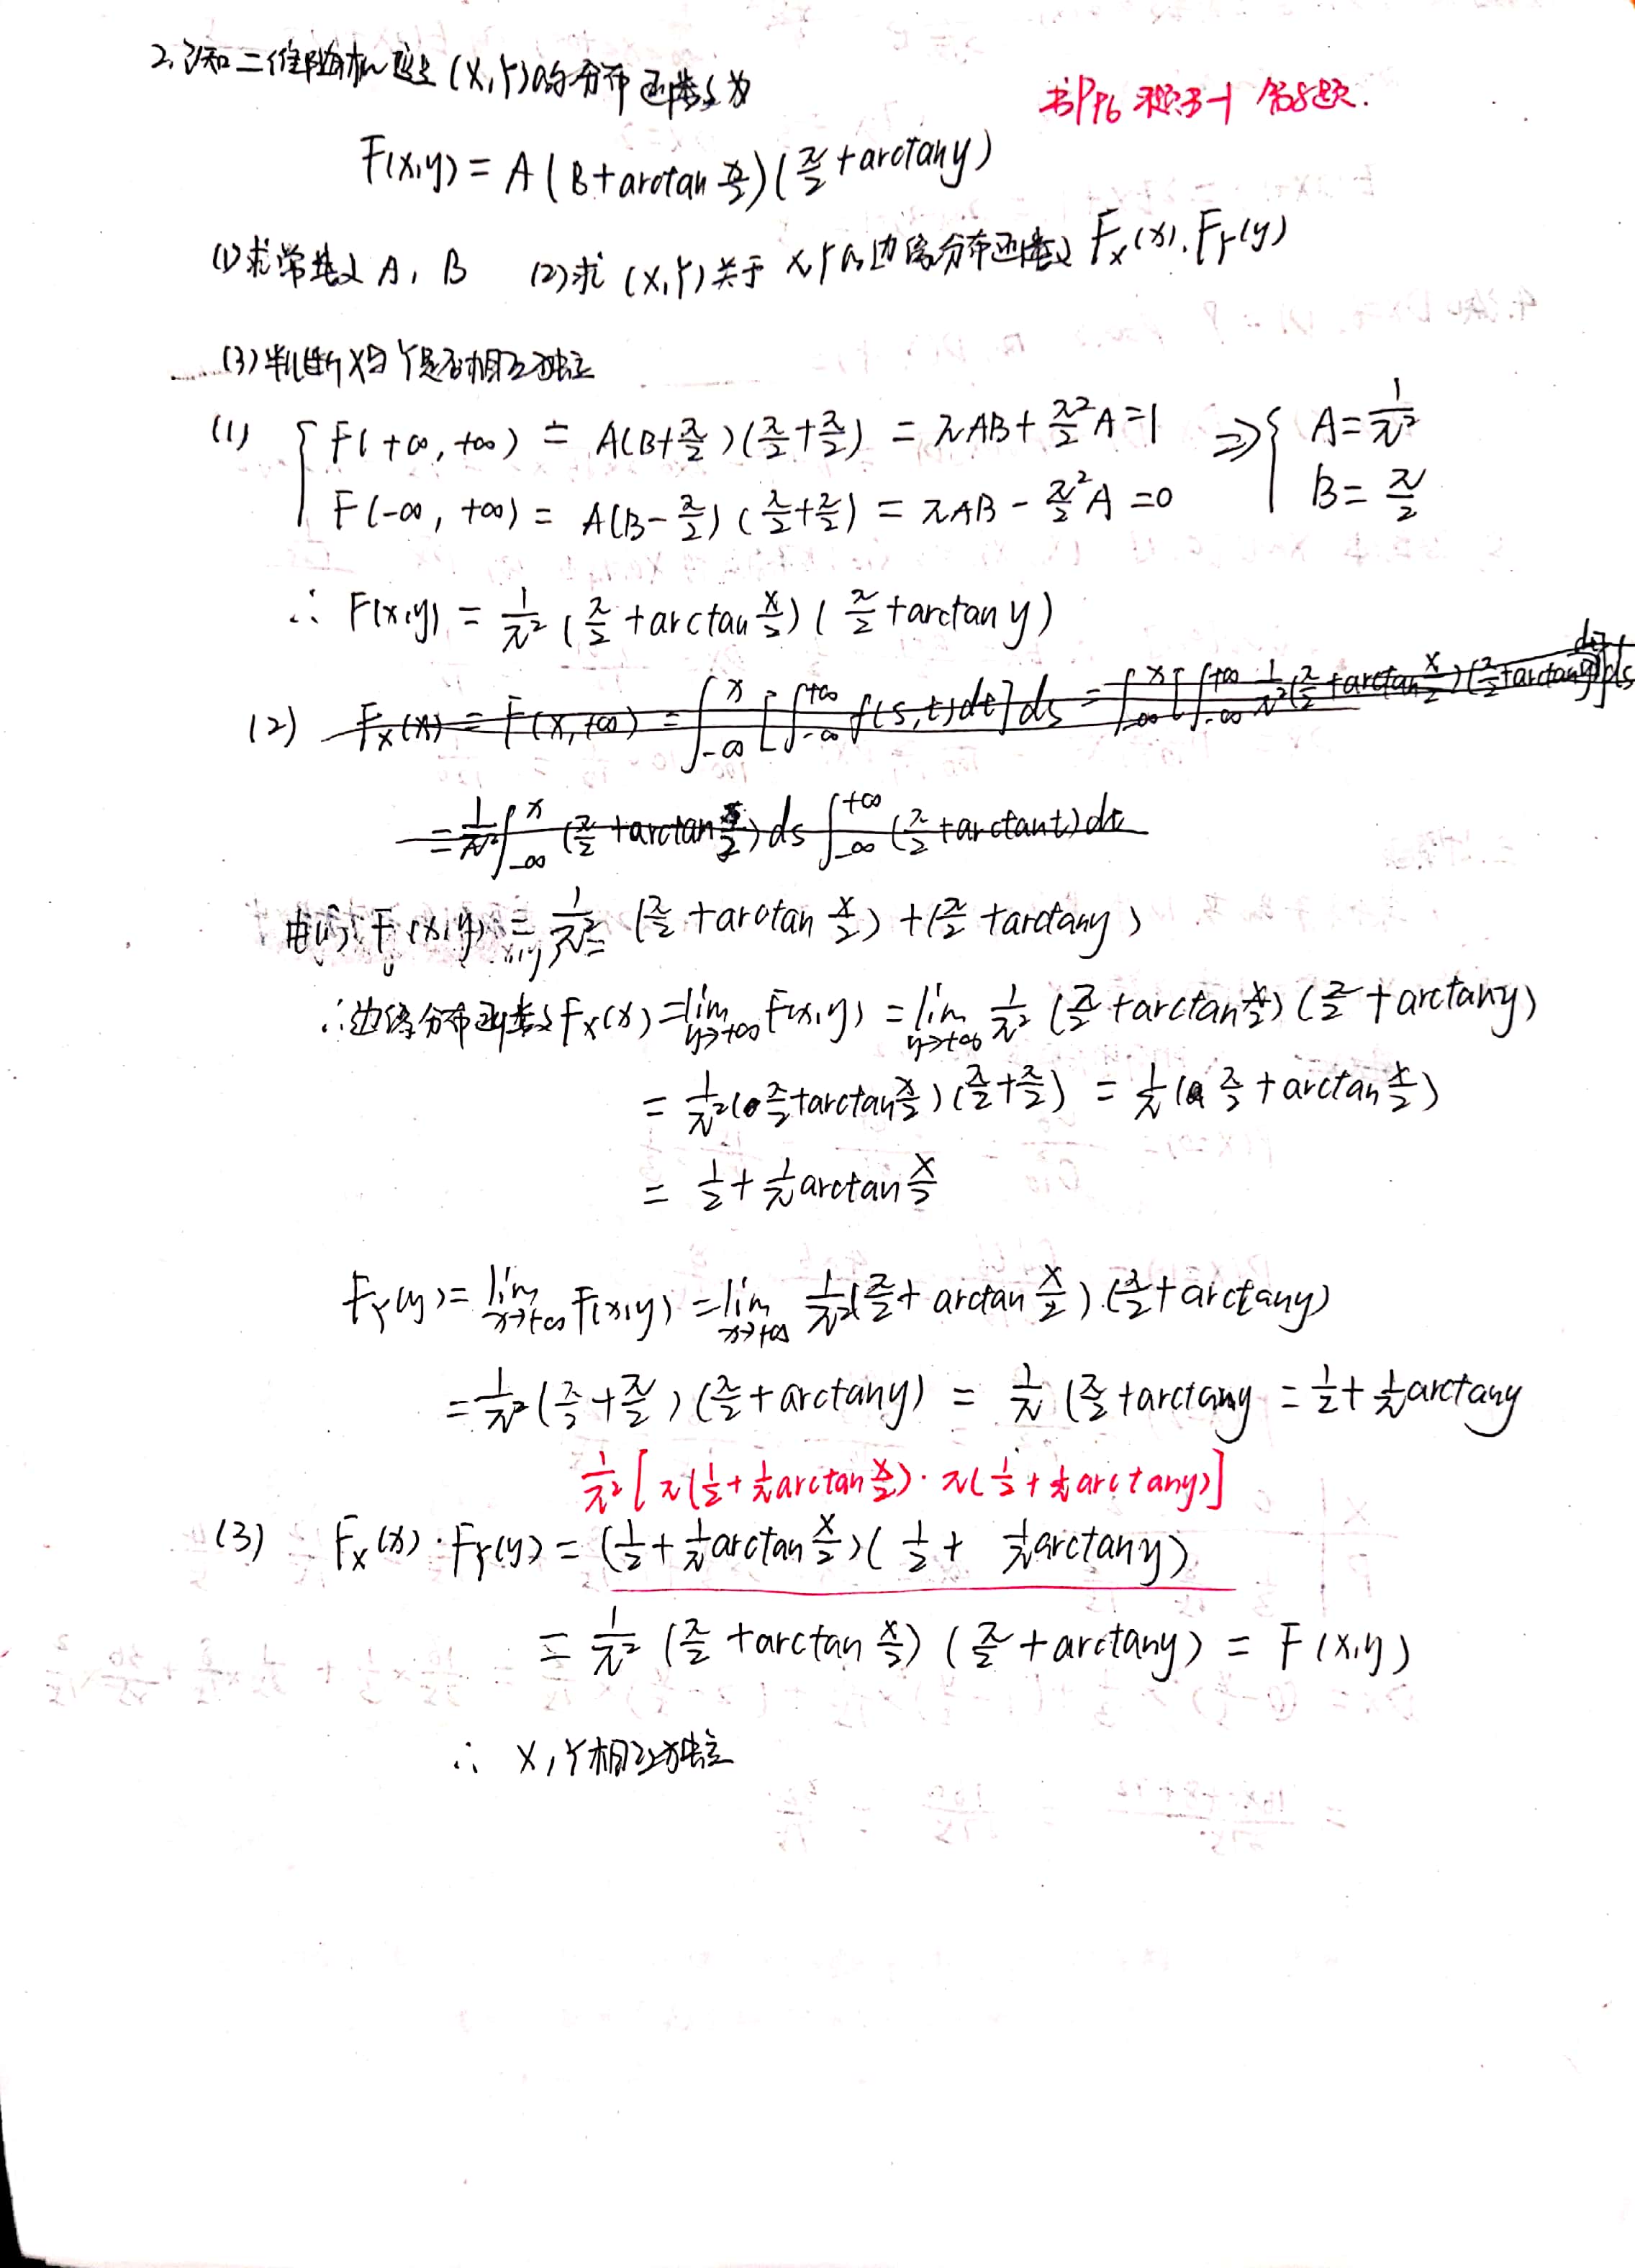 2.已知二维随机变量(X,Y)的分布函数为
书P96 习题3-1 第8题.
F(x,y)=A(B+arctan x/2)(π/2+arctany)
(1)求常数A,B (2)求(X,Y)关于X,Y的边缘分布函数F_X(x).F_Y(y)
(3)判断X与Y是否相互独立
(1) { F(+∞,+∞) = A(B+π/2)(π/2+π/2) = πAB+π²/2 A=1 ⇒ { A=1/π²
F(-∞,+∞) = A(B-π/2)(π/2+π/2) = πAB-π²/2 A=0 B=π/2
∴ F(x,y) = 1/π² (π/2+arctan x/2)(π/2+arctan y)
(2) F_X(x) = F(x,+∞) = ∫_{-∞}^{x}[∫_{-∞}^{+∞} f(s,t)dt]ds = ∫_{-∞}^{x}[∫_{-∞}^{+∞} 1/π²(π/2+arctan x/2)(π/2+arctan y)]ds
= 1/π² ∫_{-∞}^{x}(π/2+arctan s/2)ds ∫_{-∞}^{+∞}(π/2+arctan t)dt
由(1)F(x,y) = 1/π² (π/2+arctan x/2)+(π/2+arctany)
∴边缘分布函数F_X(x)=lim_{y→+∞}F(x,y) = lim_{y→+∞} 1/π² (π/2+arctan x/2)(π/2+arctany)
= 1/π²(π/2+arctan x/2)(π/2+π/2) = 1/π(π/2+arctan x/2)
= 1/2+1/π arctan x/2
F_Y(y)=lim_{x→+∞}F(x,y)=lim_{x→+∞} 1/π²(π/2+arctan x/2).(π/2+arctany)
=1/π²(π/2+π/2)(π/2+arctany) = 1/π(π/2+arctany =1/2+1/π arctany
1/π²[π(1/2+1/π arctan x/2)·π(1/2+1/π arctany)]
(3) F_X(x)·F_Y(y)=(1/2+1/π arctan x/2)(1/2+ 1/π arctany)
= 1/π² (π/2+arctan x/2)(π/2+arctany) = F(x,y)
∴ X,Y相互独立